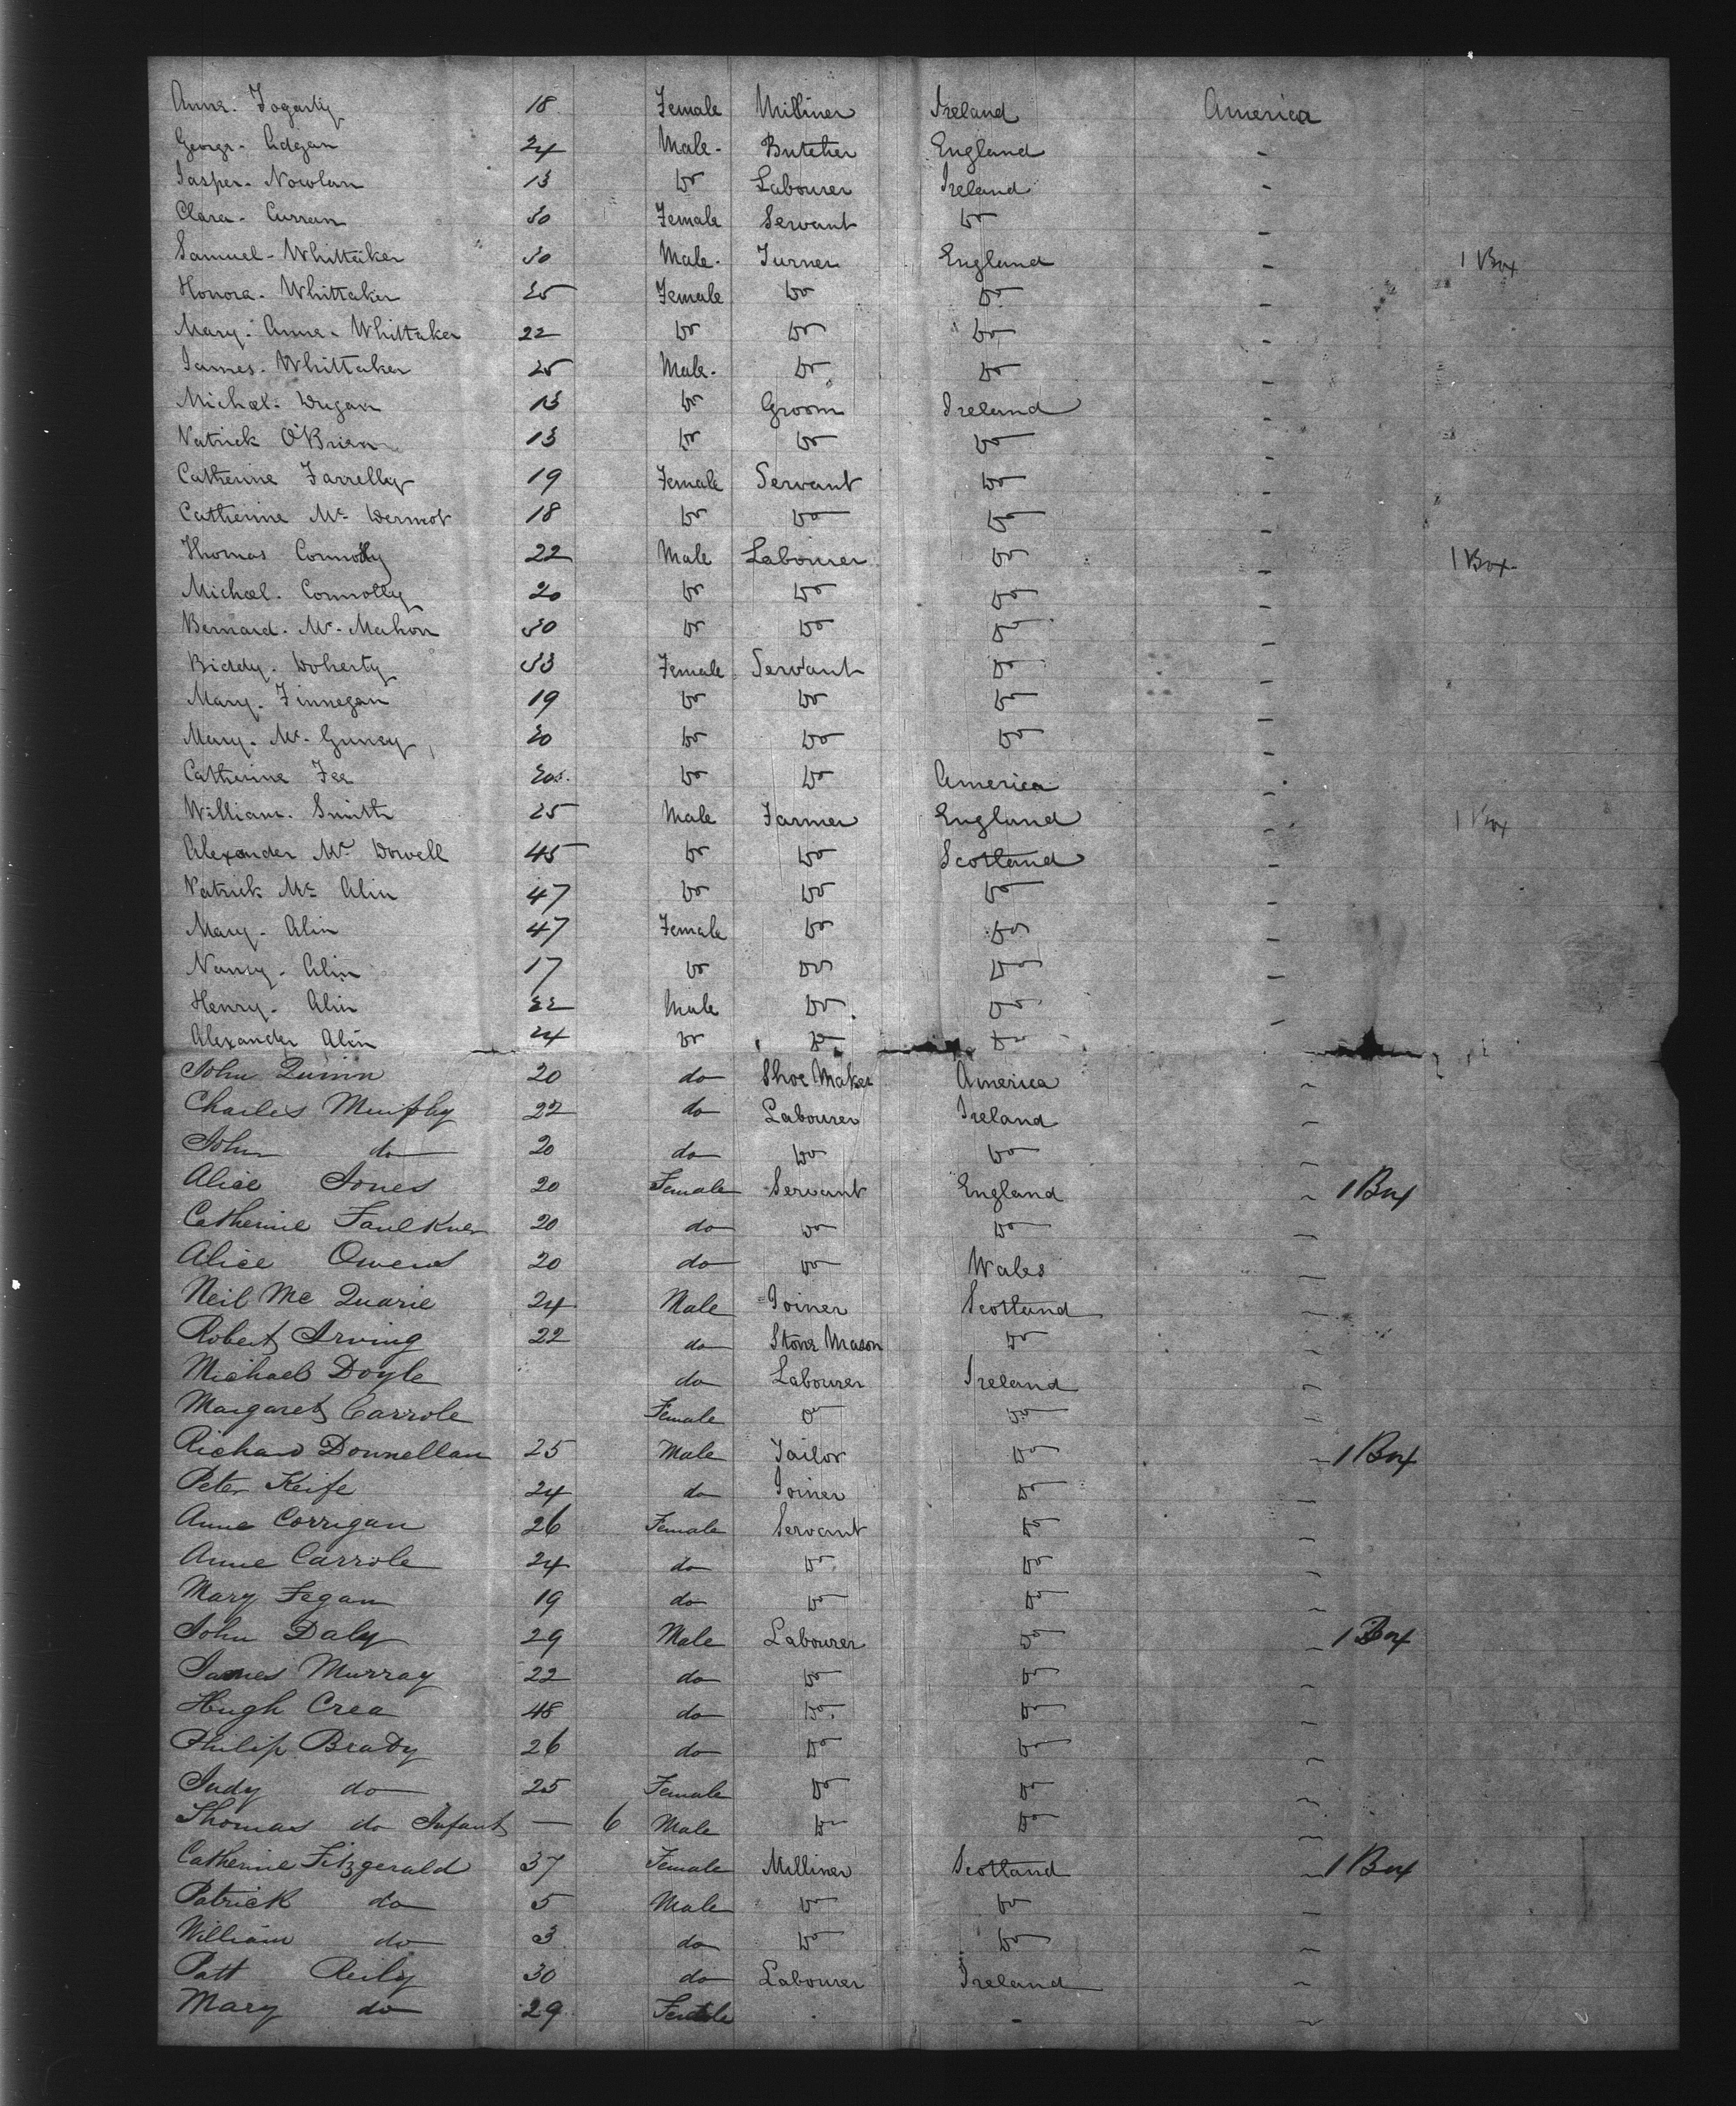 Anne. Fogarty 18 Female Milliner Ireland America
George. Edgan 24 Male. Butcher England -
Jasper. Nowlan 13 Do Labourer Ireland -
Clara. Curran 30 Female Servant Do -
Samuel. Whittaker 30 Male. Turner England - 1 Box
Honora. Whittaker 25 Female Do Do -
Mary. Anne. Whittaker 22 Do Do Do -
James. Whittaker 25 Male. Do Do -
Michael. Dugan 13 Do Groom Ireland -
Patrick O'Brien 13 Do Do Do -
Catherine Farrelly 19 Female Servant Do -
Catherine Mc Dermot 18 Do Do Do -
Thomas Connolly 22 Male Labourer Do - 1 Box
Michael. Connolly 20 Do Do Do -
Bernard. Mc. Mahon 30 Do Do Do -
Biddy. Doherty 33 Female Servant Do -
Mary. Finnegan 19 Do Do Do -
Mary. Mc. 20 Do Do Do -
Catherine Fee 20 Do Do America -
William. Smith 25 Male Farmer England - 1 Box
Alexander Mc Dowell 45 Do Do Scotland -
Patrick Mc Alin 47 Do Do Do -
Mary. Alin 47 Female Do Do -
Nancy. Alin 17 Do Do Do -
Henry. Alin 22 Male Do Do -
Alexander Alin 24 Do Do Do
John Quinn 20 do Shoe Maker America -
Charles Murphy 22 do Labourer Ireland -
John do 20 do Do Do -
Alice Jones 20 Female Servant England - 1 Box
Catherine Faulkner 20 do Do Do -
Alice Owens 20 do Do Wales -
Neil Mc Quarie 24 Male Joiner Scotland -
Robert Irving 22 do Stone Mason Do -
Michael Doyle do Labourer Ireland -
Margaret Carrole Female Do Do -
Richard Donnellan 25 Male Tailor Do - 1 Box
Peter Keife 24 do Joiner Do -
Anne Corrigan 26 Female Servant Do -
Anne Carrole 24 do Do Do -
Mary Fegan 19 do Do Do -
John Daly 29 Male Labourer Do - 1 Box
James Murray 22 do Do Do -
Hugh Crea 48 do Do Do -
Philip Brady 26 do Do Do -
Judy do 25 Female Do Do -
Thomas do Infant — 6 Male Do Do -
Catherine Fitzgerald 37 Female Milliner Scotland - 1 Box
Patrick do 5 Male Do Do -
William do 3 do Do Do -
Patt Reily 30 do Labourer Ireland -
Mary do 29 Female - -